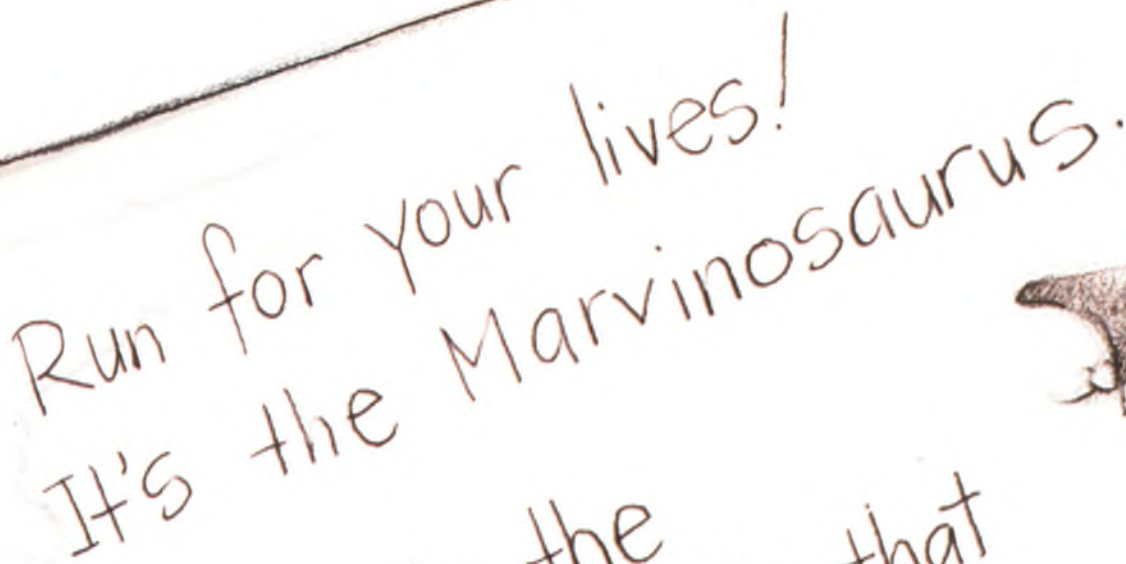 Run for your lives!
It's the Marvinosaurus.
the that